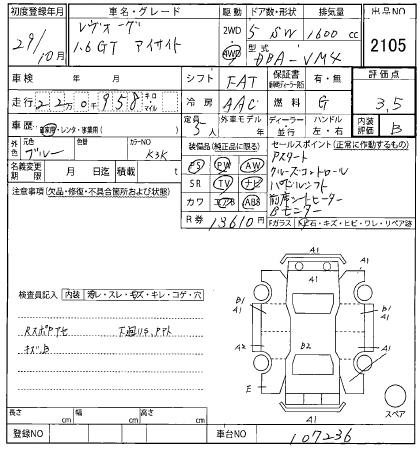 初度登録年月 車名・グレード 駆動 ドア数・形状 排気量 出品NO
29/10月 レヴォーグ 1.6GT アイサイト 2WD 4WD 5 SW 1600 cc 2105
型式 DBA-VM4
車検 年 月 シフト FAT 保証書 有・無 評価点
走行 22万0千958 キロ マイル 冷房 AAC 燃料 G 3.5
車歴 自家用・レンタ・事業用( ) 定員 5人 外車モデル 年 ディーラー 並行 ハンドル 左・右 内装評価 B
外色 元色 ブルー 色替 カラーNO K3K
装備品(純正品に限る) セールスポイント(正常に動作するもの)
名義変更期限 月 日迄 積載 t
PS PW AW
SR TV ナビ
カワ エアB ABS
R券 13610円
アスタート
クルーズコントロール
パドルシフト
前席シートヒーター
Bモニター
注意事項(欠品・修復・不具合箇所および状態)
Fガラス 石・キズ・ヒビ・ワレ・リペア跡
検査員記入 内装 汚レ・スレ・キズ・キレ・コゲ・穴
キズ
A1
A1
A1
B/A1
B/A1
A2
B2
A1
E
A1
A1
スペア
長さ cm 幅 cm 高さ cm
登録NO 車台NO 107236